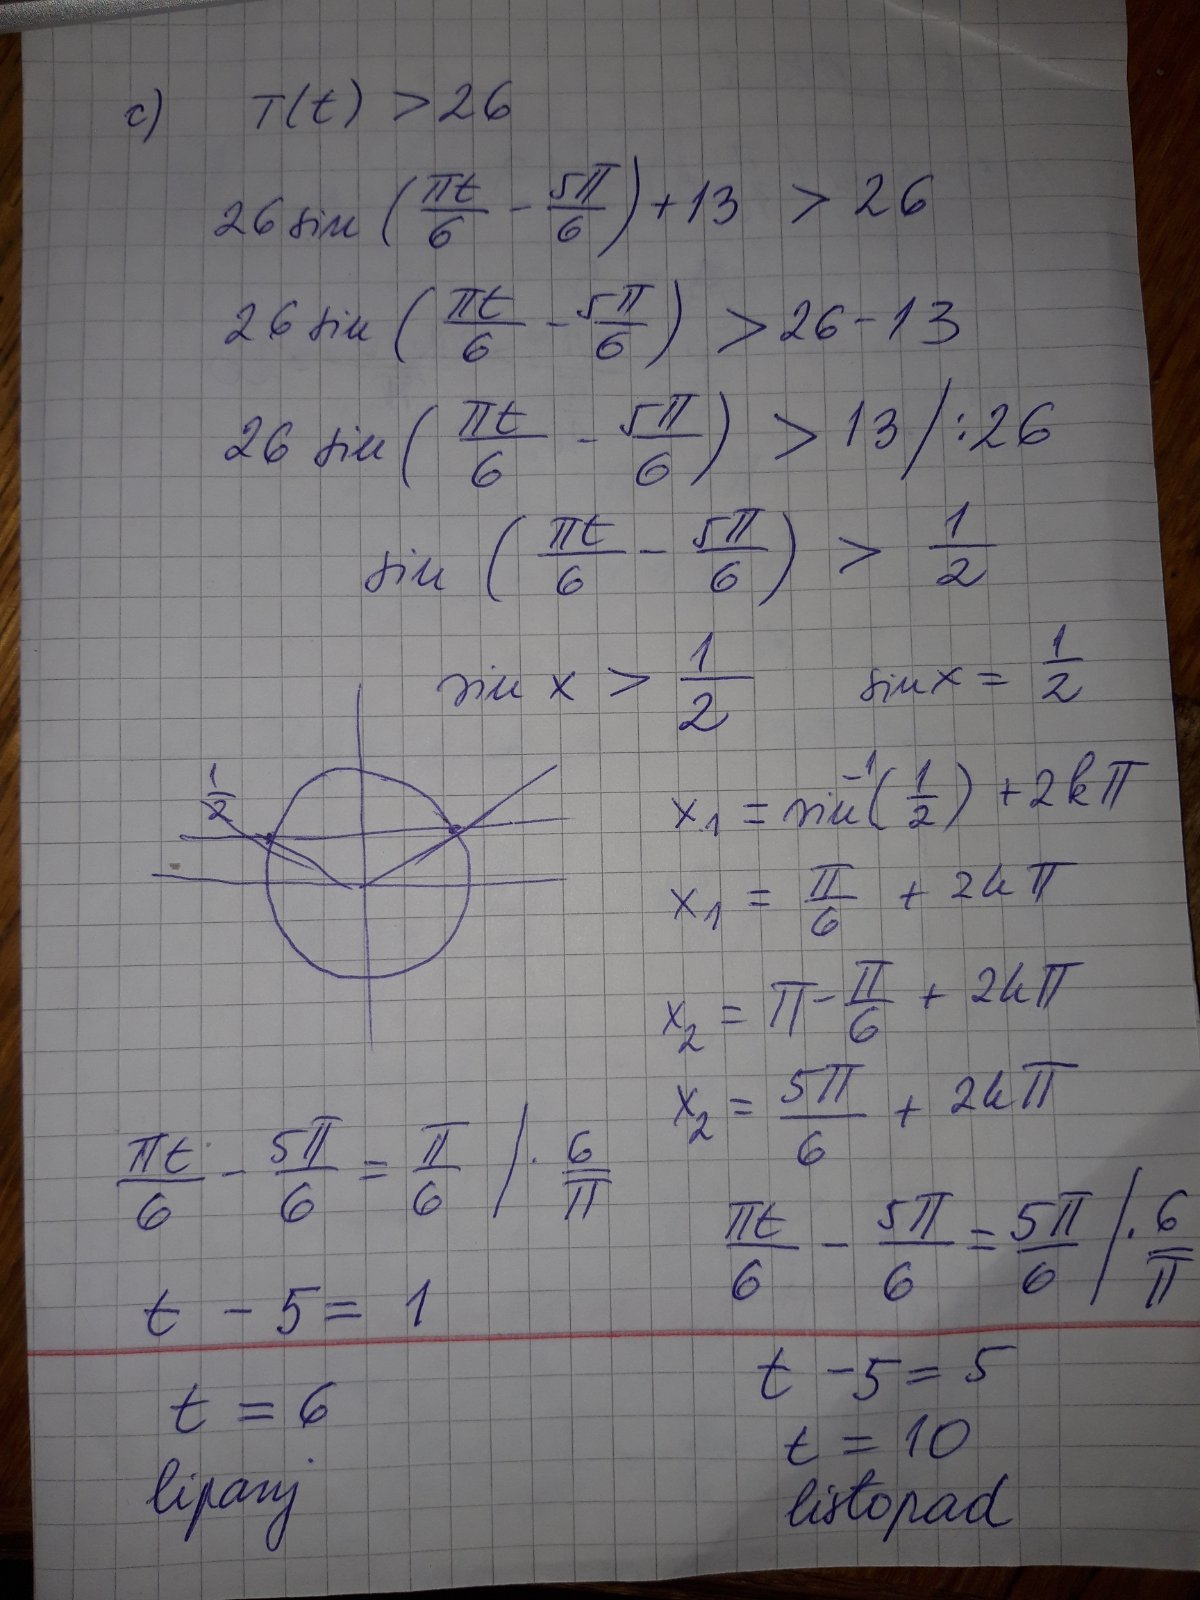 c) T(t) > 26
26 sin (πt/6 - 5π/6) + 13 > 26
26 sin (πt/6 - 5π/6) > 26 - 13
26 sin (πt/6 - 5π/6) > 13 / :26
sin (πt/6 - 5π/6) > 1/2
sin x > 1/2 sin x = 1/2
1/2
x₁ = sin⁻¹(1/2) + 2kπ
x₁ = π/6 + 2kπ
x₂ = π - π/6 + 2kπ
x₂ = 5π/6 + 2kπ
πt/6 - 5π/6 = π/6 / · 6/π
t - 5 = 1
t = 6
lipanj
πt/6 - 5π/6 = 5π/6 / · 6/π
t - 5 = 5
t = 10
listopad